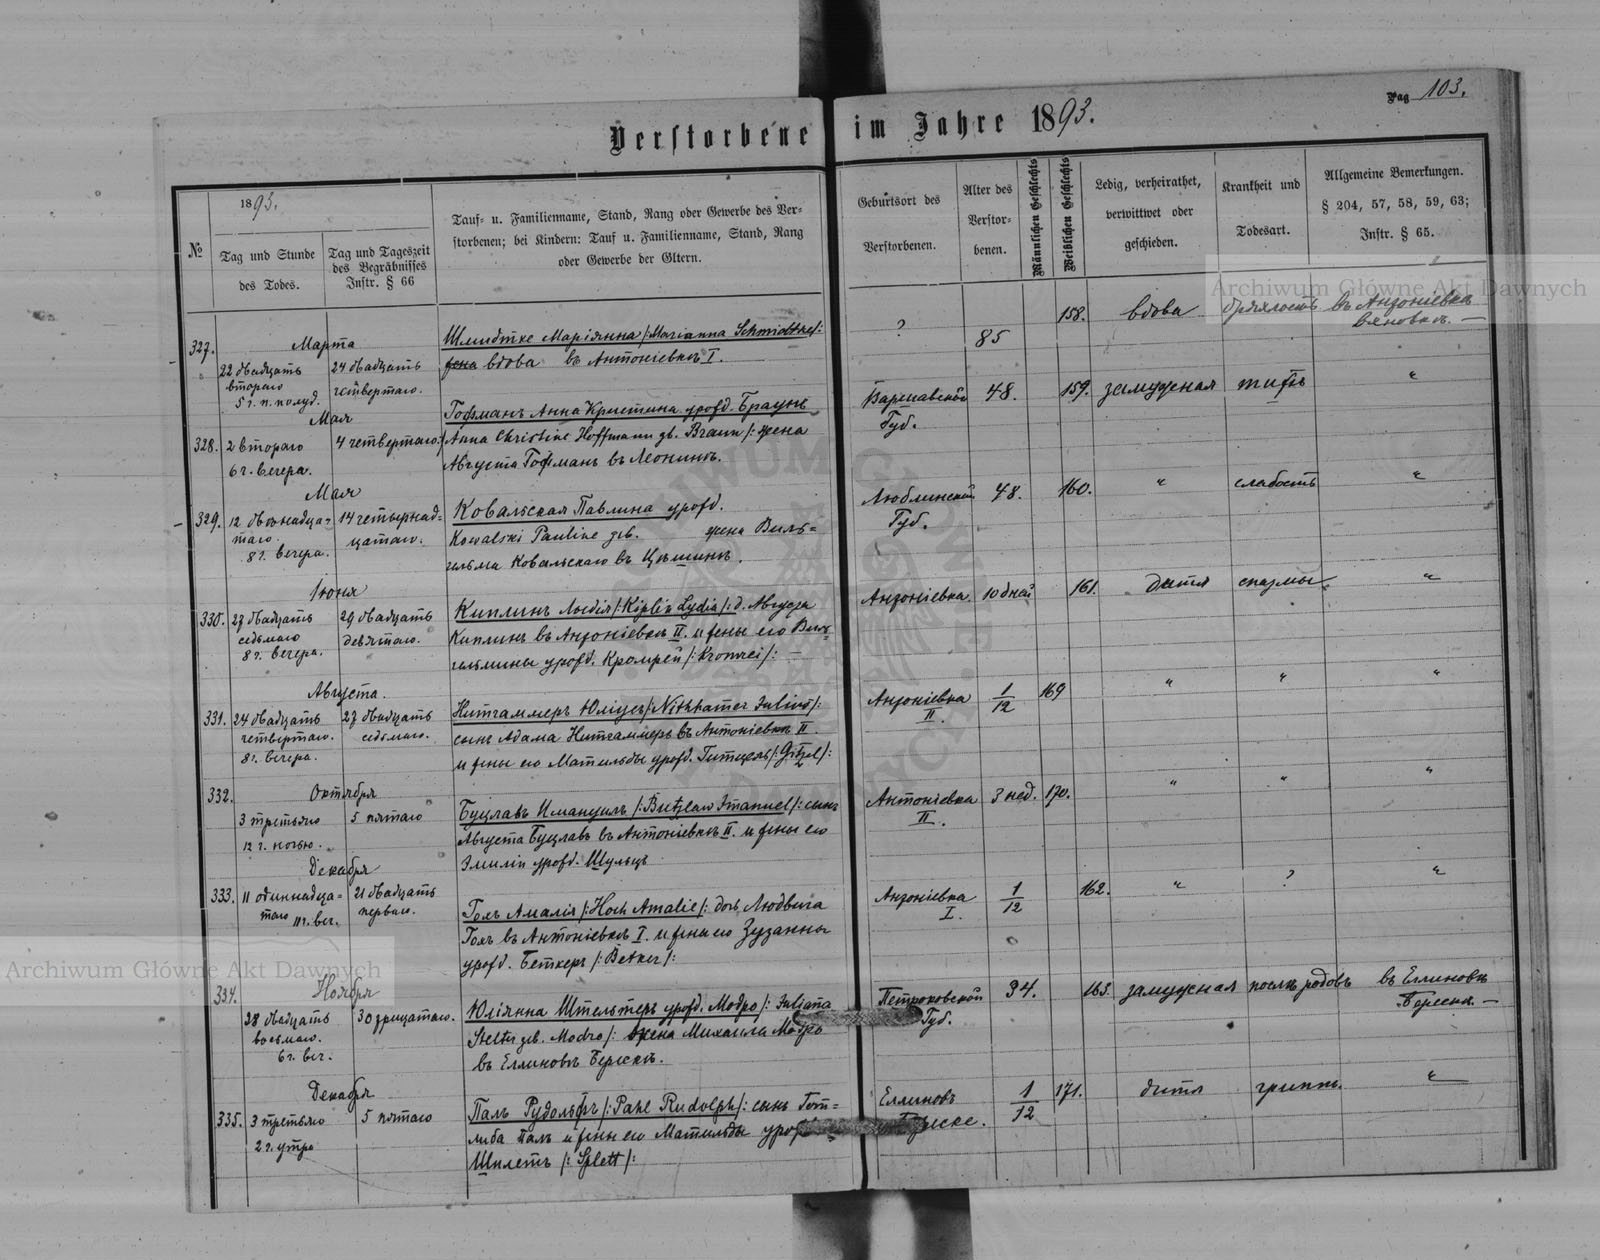 Pag 103.
Verstorbene im Jahre 1893.
№
1893.
Tag und Stunde
des Todes.
Tag und Tageszeit
des Begräbnisses
Instr. § 66
Tauf- u. Familienname, Stand, Rang oder Gewerbe des Ver-
storbenen; bei Kindern: Tauf u. Familienname, Stand, Rang
oder Gewerbe der Eltern.
Geburtsort des
Verstorbenen.
Alter des
Verstor-
benen.
Männlichen Geschlechts
Weiblichen Geschlechts
Ledig, verheirathet,
verwittwet oder
geschieden.
Krankheit und
Todesart.
Allgemeine Bemerkungen.
§ 204, 57, 58, 59, 63;
Instr. § 65.
327.
Марта
22 двадцать
втораго
5 ч. п. полуд.
24 двадцать
четвертаго.
Шмидтке Маріянна /: Marianna Schmidtke /:
жена вдова въ Антоніевкѣ I.
?
85
158.
вдова
дряхлость
въ Антоніевкѣ
328.
Мая
2 втораго
6 ч. вечера.
4 четвертаго.
Гофманъ Анна Кристина урожд. Браунъ
/: Anna Christine Hoffmann gb. Braun /: жена
Августа Гофманъ въ Леонинѣ.
Варшавской
Губ.
48.
159.
замужная
тифъ
"
329.
Мая
12 двѣнадца-
таго
8 ч. вечера.
14 четырнад-
цатаго.
Ковальская Павлина урожд.
Kowalski Pauline gb. жена Виль-
гельма Ковальскаго въ Цѣшинѣ.
Люблинской
Губ.
48.
160.
"
слабость
"
330.
Іюня
27 двадцать
седьмаго
8 ч. вечера.
29 двадцать
девятаго.
Киплинъ Лидія /: Kiplin Lydia /: д. Августа
Киплинъ въ Антоніевкѣ II. и жены его Виль-
гельмины урожд. Кромрей /: Kromrei /: —
Антоніевка
10 дней
161.
дитя
спазмы
"
331.
Августа.
24 двадцать
четвертаго.
8 ч. вечера.
27 двадцать
седьмаго.
Нитгаммеръ Юліусъ /: Nithhamer Julius /:
сынъ Адама Нитгаммеръ въ Антоніевкѣ II.
и жены его Матильды урожд. Гитцель /: Gitzel /:
Антоніевка
II.
1/12
169
"
"
"
332.
Октября
3 третьяго
12 ч. ночью.
5 пятаго
Буцлавъ Имануилъ /: Butzlaw Imanuel /: сынъ
Августа Буцлавъ въ Антоніевкѣ II. и жены его
Эмиліи урожд. Шульцъ
Антоніевка
II.
3 нед.
170.
"
"
"
333.
Декабря
11 одиннадца-
таго 11 ч. веч.
21 двадцать
перваго.
Гохъ Амалія /: Hoch Amalie /: дочь Людвига
Гохъ въ Антоніевкѣ I. и жены его Зузанны
урожд. Беткеръ /: Betker /:
Антоніевка
I.
1/12
162.
"
?
"
334.
Ноября
28 двадцать
восьмаго.
6 ч. веч.
30 тридцатаго.
Юліянна Штельтеръ урожд. Модро /: Juliana
Stelter gb. Modro /: жена Михаила Модро
въ Еллиновъ Береске.
Петроковской
Губ.
34.
163.
замужная
послѣ родовъ
въ Еллиновѣ
Береске. —
335.
Декабря
3 третьяго
2 ч. утро
5 пятаго
Паль Рудольфъ /: Pahl Rudolph /: сынъ Гот-
либа Паль и жены его Матильды урожд.
Шплетъ /: Splett /:
Еллиновъ
Береске.
1/12
171.
дитя
гриппъ.
"
Archiwum Główne Akt Dawnych
Archiwum Główne Akt Dawnych